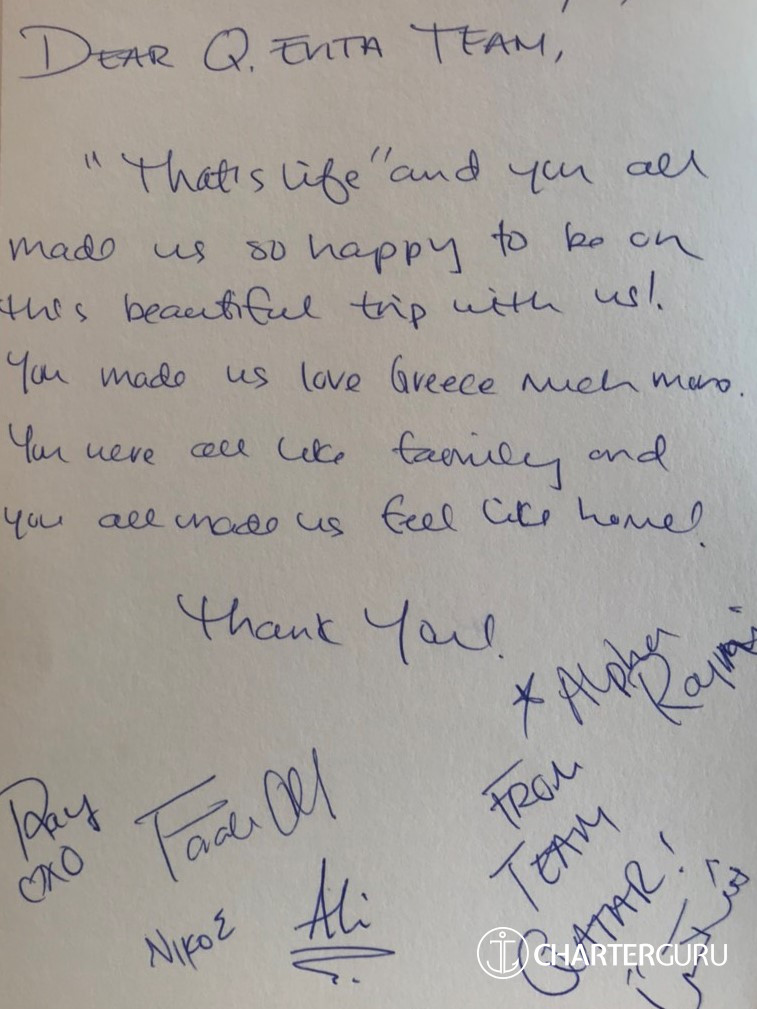 DEAR Q. EVITA TEAM,
"That's life" and you all
made us so happy to be on
this beautiful trip with us!
You made us love Greece much more.
You were all like family and
you all made us feel like home!
Thank You!
* Alpha
Ray
OXO
FROM
TEAM
QATAR!
ΝΙΚΟΣ
Ali
CHARTERGURU